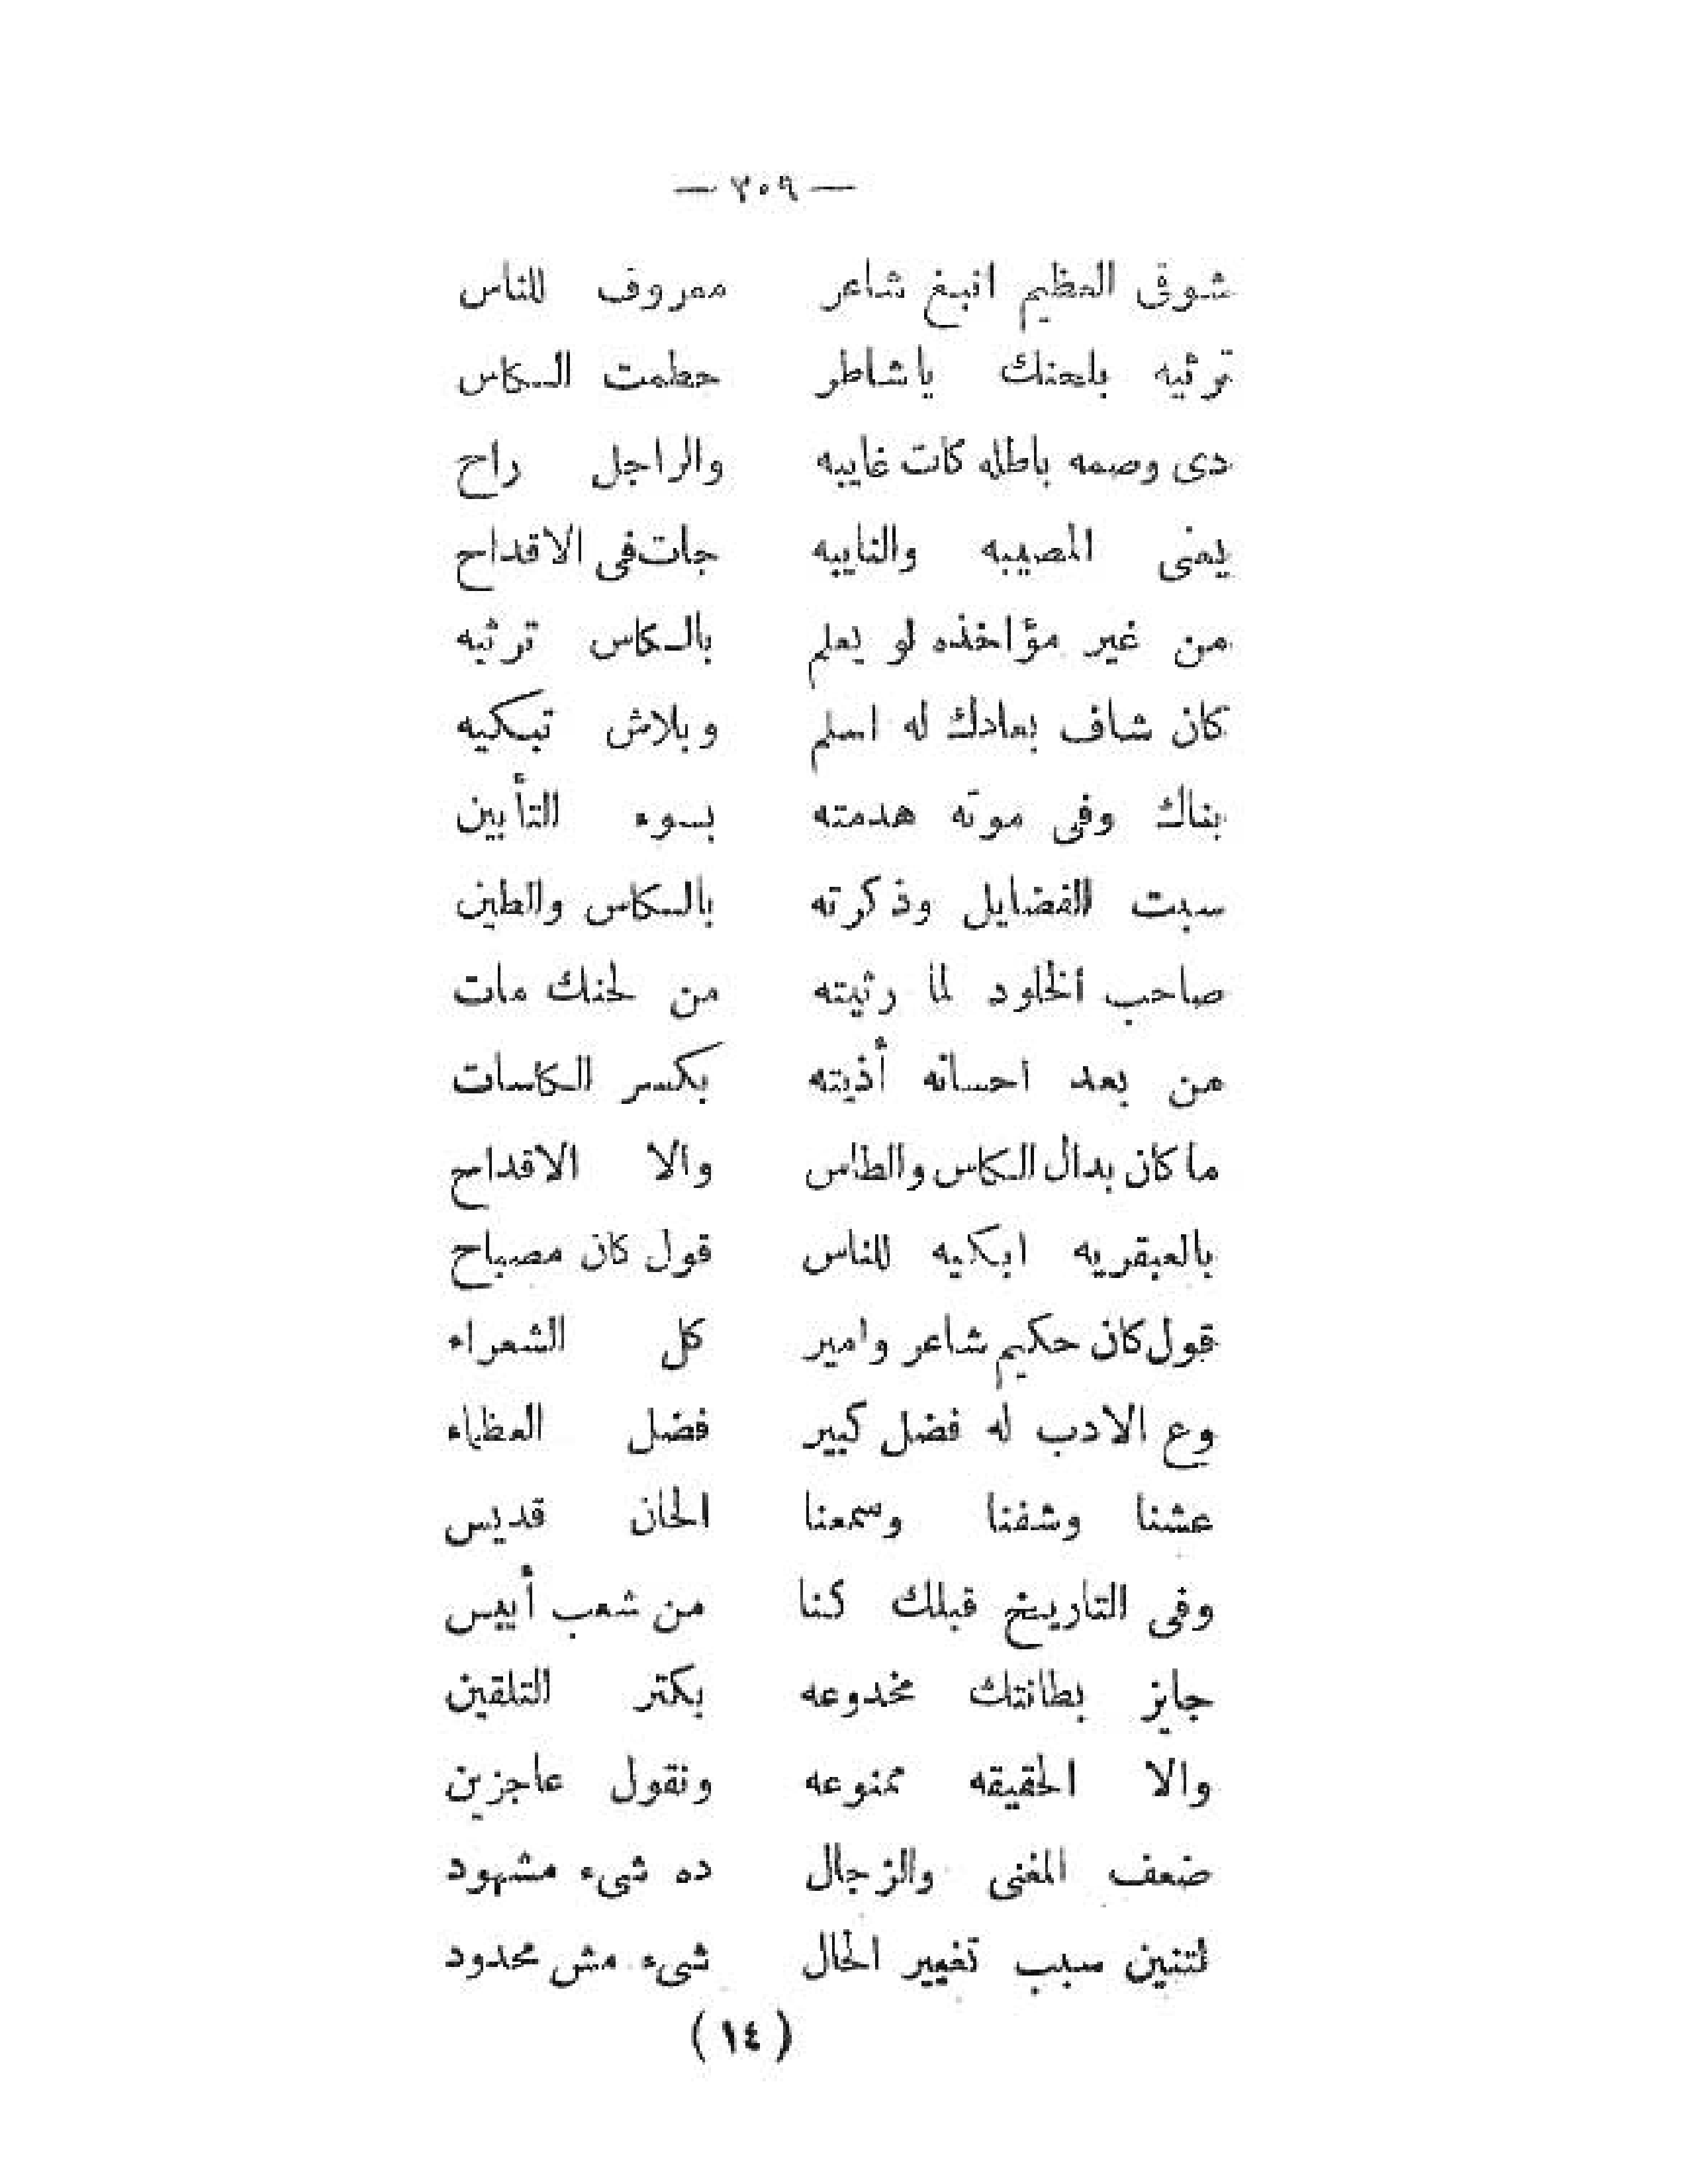 — ٢٠٩ —
شوقى العظيم انبغ شاعر معروف للناس
ترثيه بلحنك ياشاطر حطمت الكاس
دى وصمه باطله كانت غايبه والراجل راح
يعنى المصيبه والنايبه جات فى الاقداح
من غير مؤاخذه لو يعلم بالكاس ترثيه
كان شاف بعادك له اسلم وبلاش تبكيه
بناك وفى موته هدمته بسوء التأبين
سبت الفضايل وذكرته بالكاس والطين
صاحب الخلود لما رثيته من لحنك مات
من بعد احسانه أذيته بكسر الكاسات
ما كان بدال الكاس والطاس والا الاقداح
بالعبقريه ابكيه للناس قول كان مصباح
قول كان حكيم شاعر وامير كل الشعراء
وع الادب له فضل كبير فضل العظماء
عشنا وشفنا وسمعنا الحان قديس
وفى التاريخ قبلك كنا من شعب أييس
جايز بطانتك مخدوعه بكتر التلقين
والا الحقيقه ممنوعه ونقول عاجزين
ضعف المغنى والزجال ده شىء مشهود
لتنين سبب تغيير الحال شىء مش محدود
( ١٤ )